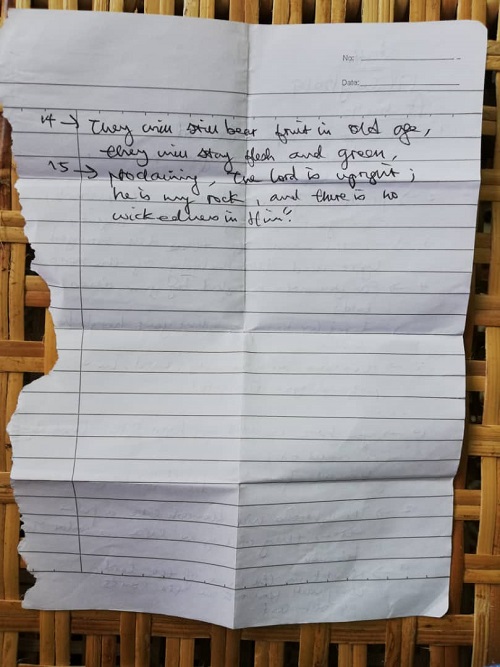 No:
Date:
14 → They will still bear fruit in old age,
they will stay flesh and green,
15 → proclaining, "The Lord is upright;
he is my rock, and there is no
wickedness in Him".